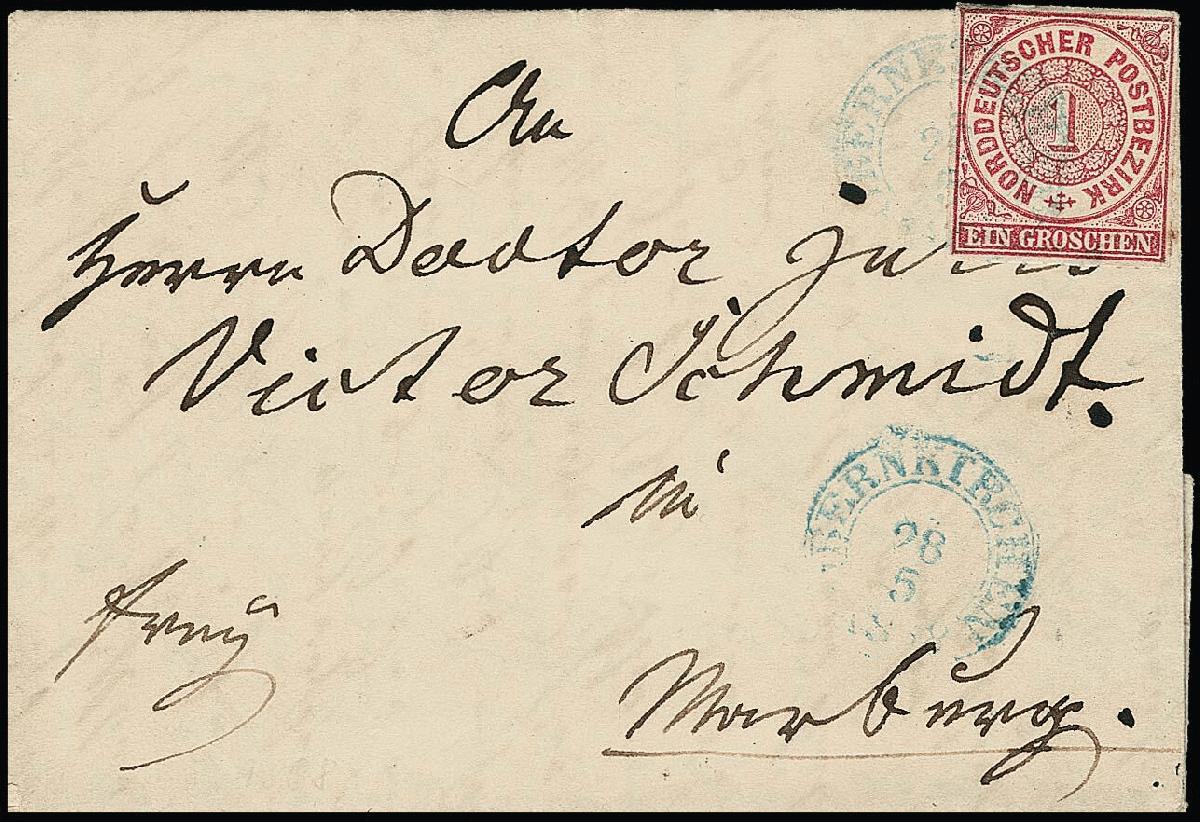 An
Herrn Doctor jur.
Victor Schmidt.
in
Marburg.
frey
NORDDEUTSCHER POSTBEZIRK
1
EIN GROSCHEN
BERNKIRCHEN
28
5